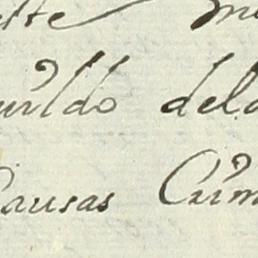 ette m
uildo dela
Causas Crim